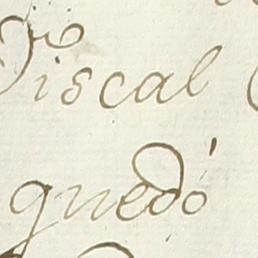 Fiscal
quedó